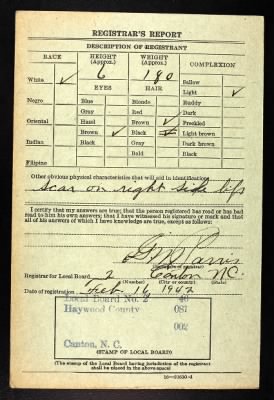 REGISTRAR'S REPORT
DESCRIPTION OF REGISTRANT
RACE HEIGHT (Approx.) WEIGHT (Approx.) COMPLEXION
White ✓ 6 180 Sallow
EYES HAIR Light ✓
Negro Blue Blonde Ruddy
Gray Red Dark
Oriental Hazel Brown ✓ Freckled
Brown ✓ Black Light brown
Indian Black Gray Dark brown
Bald Black
Filipino
Other obvious physical characteristics that will aid in identification
Scar on right side lips
I certify that my answers are true; that the person registered has read or has had
read to him his own answers; that I have witnessed his signature or mark and that
all of his answers of which I have knowledge are true, except as follows:
Parris
(Signature of registrar)
Registrar for Local Board 2 Canton N.C.
(Number) (City or county) (State)
Date of registration Feb. 16 1942
Local Board No. 2 46
Haywood County 087
002
Canton, N. C.
(STAMP OF LOCAL BOARD)
(The stamp of the Local Board having jurisdiction of the registrant
shall be placed in the above space)